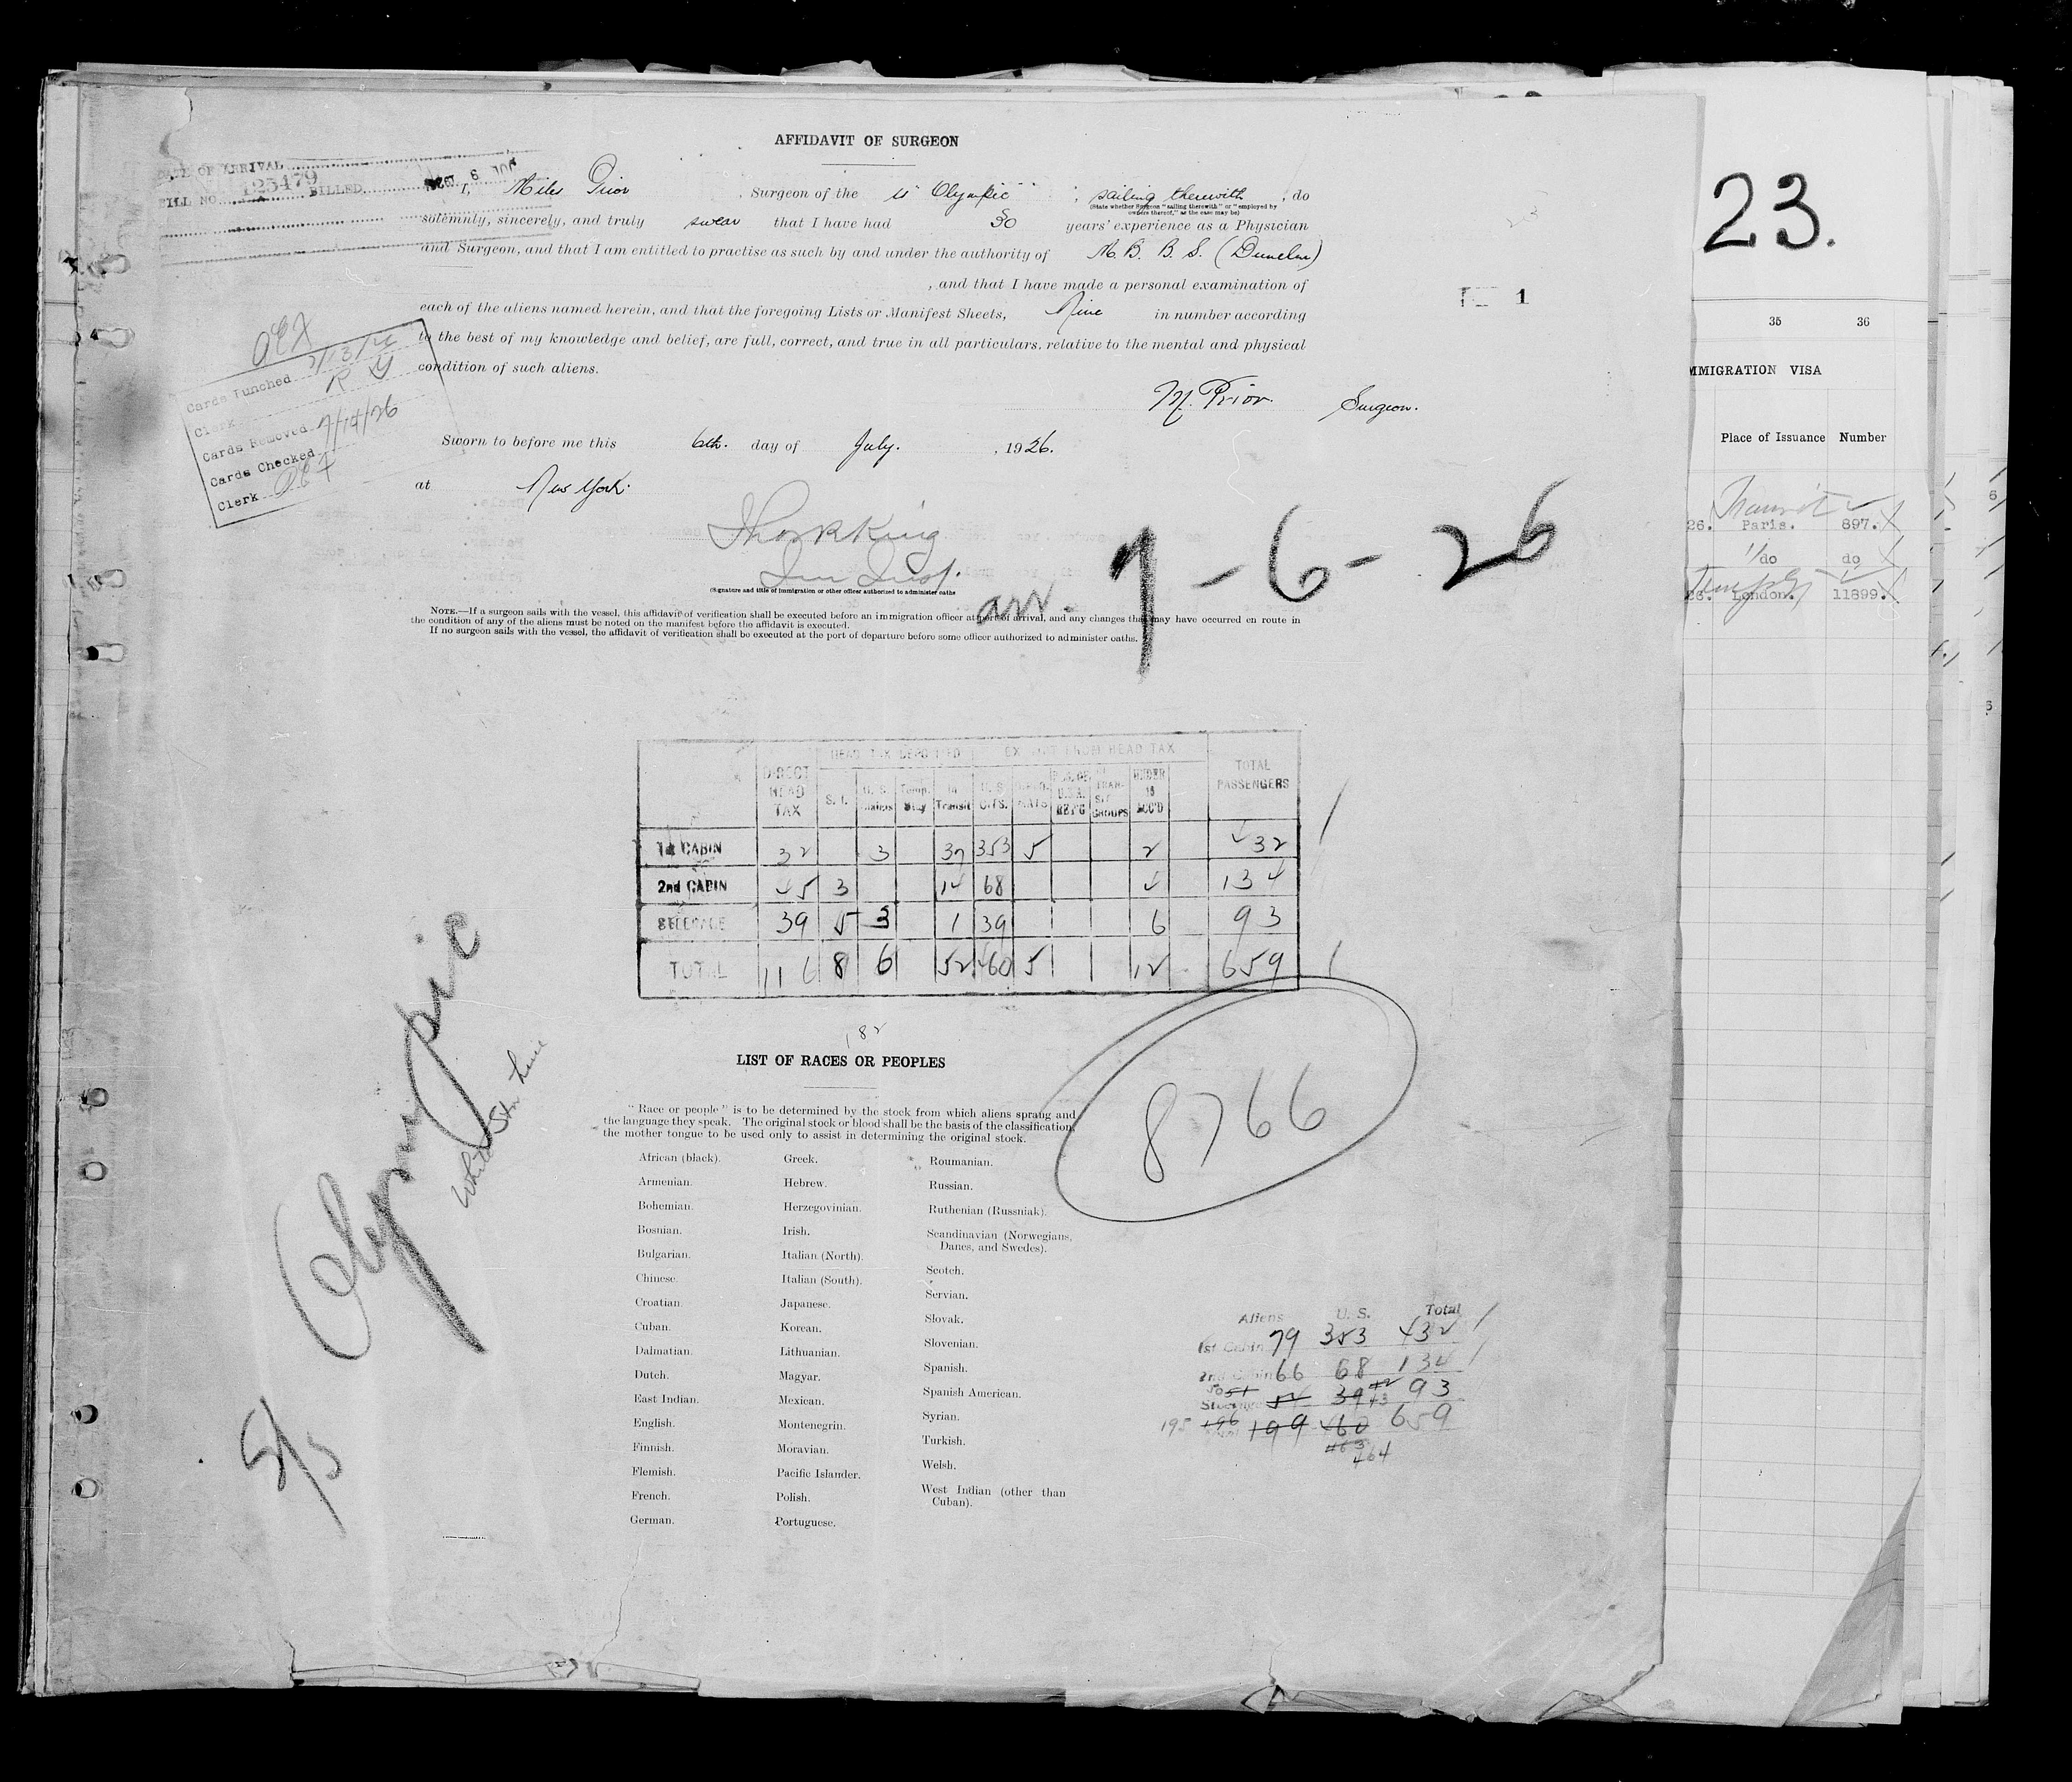 AFFIDAVIT OF SURGEON
DATE OF ARRIVAL
BILL NO. 125479 BILLED
I, Miles Prior, Surgeon of the ss "Olympic", sailing therewith, do
(State whether Surgeon "sailing therewith" or "employed by
owners thereof," as the case may be)
solemnly, sincerely, and truly swear that I have had 30 years' experience as a Physician
and Surgeon, and that I am entitled to practise as such by and under the authority of M. B. B. S. (Dunelm)
, and that I have made a personal examination of
each of the aliens named herein, and that the foregoing Lists or Manifest Sheets, Nine in number according
to the best of my knowledge and belief, are full, correct, and true in all particulars, relative to the mental and physical
condition of such aliens.
M. Prior. Surgeon.
Sworn to before me this 6th. day of July. , 1926.
at New York.
(Signature and title of immigration or other officer authorized to administer oaths
arr. 7-6-26
NOTE.—If a surgeon sails with the vessel, this affidavit of verification shall be executed before an immigration officer at port of arrival, and any changes that may have occurred en route in
the condition of any of the aliens must be noted on the manifest before the affidavit is executed.
If no surgeon sails with the vessel, the affidavit of verification shall be executed at the port of departure before some officer authorized to administer oaths.
Cards Punched 7/13/26
Clerk
Cards Removed 7/14/26
Cards Checked
Clerk
1
HEAD TAX DEPOSITED EXEMPT FROM HEAD TAX
DIRECT HEAD TAX S. I. Temp. Stay In Transit U. S. CITS. UNDER 16 ACC'D TOTAL PASSENGERS
1st CABIN 32 3 37 353 5 2 432
2nd CABIN 45 3 14 68 4 134
STEERAGE 39 5 3 1 39 6 93
TOTAL 116 8 6 52 460 5 12 659
182
LIST OF RACES OR PEOPLES
"Race or people" is to be determined by the stock from which aliens sprang and
the language they speak. The original stock or blood shall be the basis of the classification,
the mother tongue to be used only to assist in determining the original stock.
African (black).
Armenian.
Bohemian.
Bosnian.
Bulgarian.
Chinese.
Croatian.
Cuban.
Dalmatian.
Dutch.
East Indian.
English.
Finnish.
Flemish.
French.
German.
Greek.
Hebrew.
Herzegovinian.
Irish.
Italian (North).
Italian (South).
Japanese.
Korean.
Lithuanian.
Magyar.
Mexican.
Montenegrin.
Moravian.
Pacific Islander.
Polish.
Portuguese.
Roumanian.
Russian.
Ruthenian (Russniak).
Scandinavian (Norwegians,
Danes, and Swedes).
Scotch.
Servian.
Slovak.
Slovenian.
Spanish.
Spanish American.
Syrian.
Turkish.
Welsh.
West Indian (other than
Cuban).
8766
Olympic
White Star Line
S/S
Aliens U. S. Total
1st Cabin 79 353 432
2nd Cabin 66 68 134
Steerage 54 39 93
195 196 199 460 659
463
464
23.
35 36
IMMIGRATION VISA
Place of Issuance Number
Transit
26. Paris. 897.
do do
26. London. 11899.